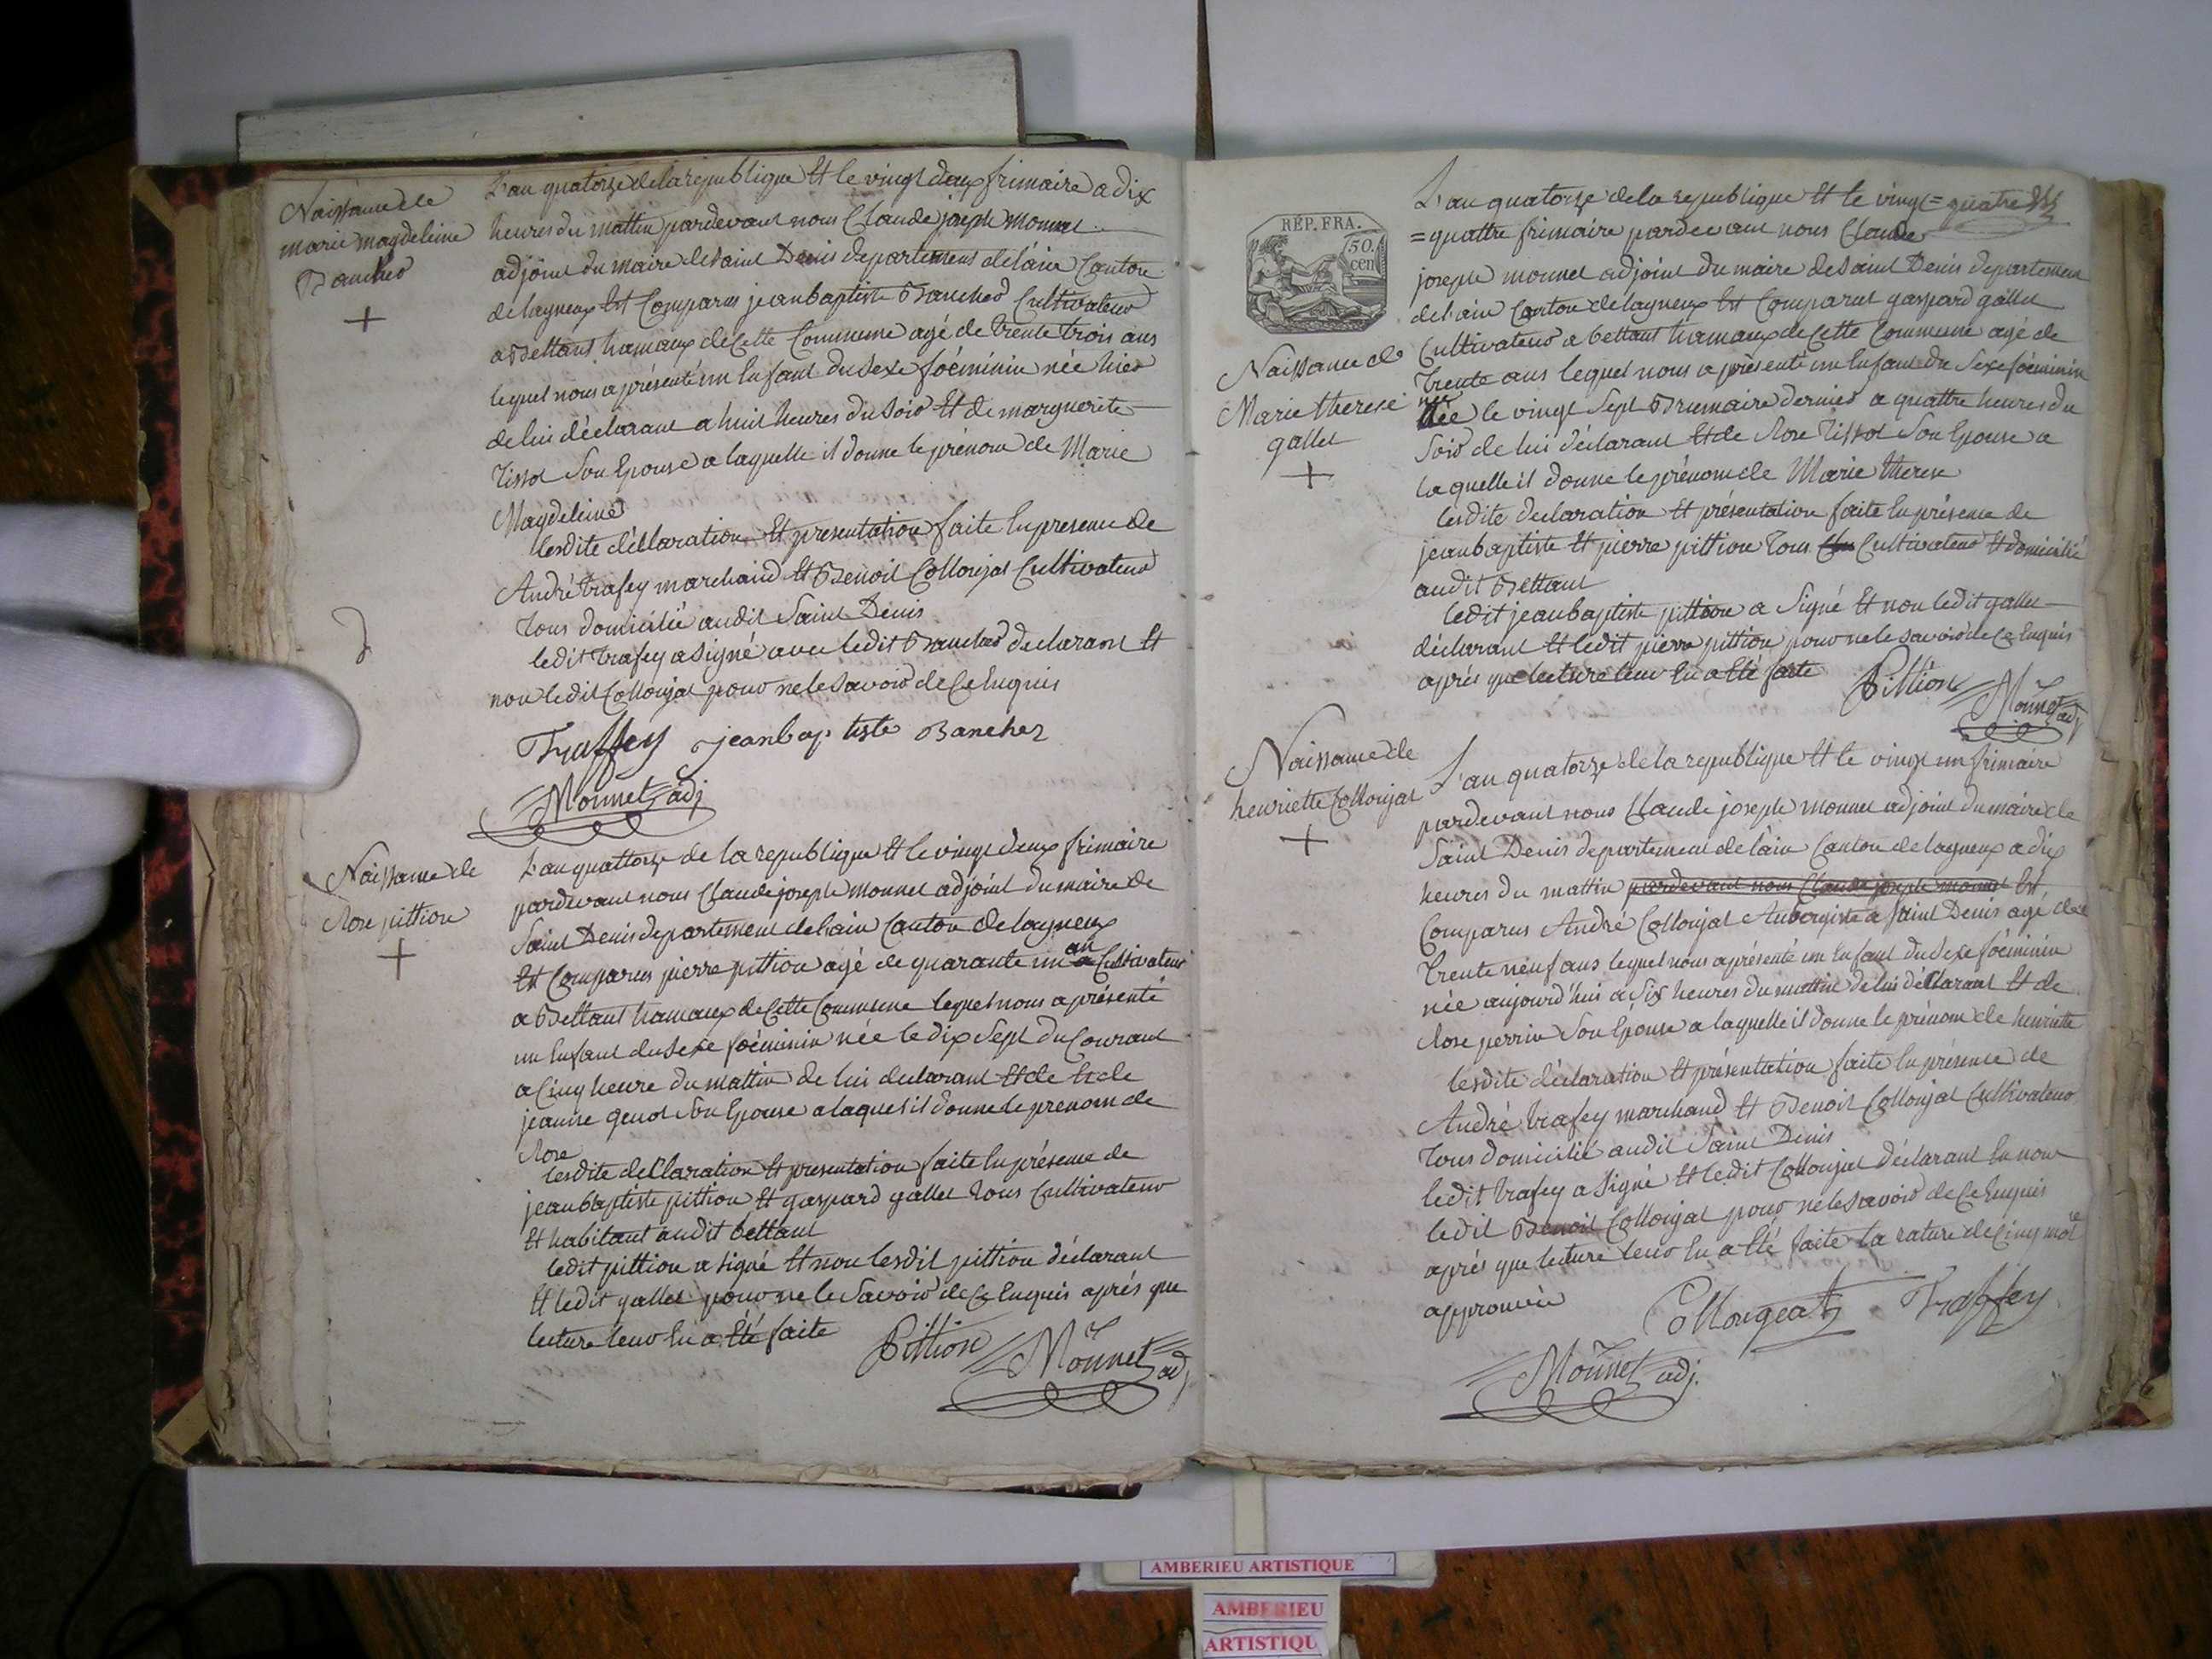 Naissance de
marie magdeleine
Bancher
+
L'an quatorze de la republique Et le vingt deux frimaire a dix
heures du mattin pardevant nous Claude joseph monnet
adjoint du maire de saint Denis departement de l'ain Canton
de lagneux Est Comparus jean baptiste Bancher Cultivateur
a Bettant hamaux de Cette Commune agé de trente trois ans
lequel nous a présenté un Enfant du Sexe foéminin née hier
de lui déclarant a huit heures du Soir Et de marguerite
Tissot Son Epouse a laquelle il donne le prénom de Marie
Magdeleine
lesdite déclaration Et presentation faite En presence de
André trafey marchand Et Benoit Collonjat Cultivateur
Tous domicilié audit Saint Denis
ledit trafey a Signé avec ledit Bancher declarant Et
non ledit Collonjat pour ne le Savoir de Ce Enquis
Traffey jeanbaptiste Bancher
Monnet adj
Naissance de
Rose pittion
+
L'an quattorze de la republique Et le vingt deux frimaire
pardevant nous Claude joseph monnet adjoint du maire de
Saint Denis departement de l'ain Canton de lagneux
Est Comparus pierre pittion agé de quarante un an Cultivateur
a Bettant hamaux de Cette Commune lequel nous a présenté
un Enfant du Sexe foéminin née le dix Sept du Courant
a Cinq heure du mattin de lui declarant Et de Et de
jeanne genot Son Epouse a laquel il donne le prenom de
Rose
lesdite declaration Et presentation faite En présence de
jean baptiste pittion Et gaspard gallet tous Cultivateur
Et habitant audit bettant
ledit pittion a signé Et non lesdit pittion déclarant
Et ledit gallet pour ne le Savoir de Ce Enquis aprés que
lecture leur En a Eté faite
Pittion Monnet adj
RÉP. FRA.
50.
cen
Naissance de
Marie therese
gallet
+
L'an quatorze de la republique Et le vingt = quatre
= quattre frimaire pardevant nous Claude
joseph monnet adjoint du maire de Saint Denis departement
de l'ain Canton de lagneux Est Comparut gaspard gallet
Cultivateur a bettant hamaux de Cette Commune agé de
trente ans lequel nous a présenté un Enfant du Sexe foéminin
née le vingt Sept Brumaire dernier a quattre heures du
Soir de lui déclarant Et de Rose Tissot Son Epouse a
laquelle il donne le prénom de Marie therese
lesdite declaration Et présentation faite En présence de
jean baptiste Et pierre pittion Tous Cultivateur Et domicilié
audit Bettant
ledit jean baptiste pittion a Signé Et non ledit gallet
déclarant Et ledit pierre pittion pour ne le Savoir de Ce Enquis
aprés que lecture leur En a Eté faite
Pittion Monnet adj
Naissance de
henriette Collonjat
+
L'an quatorze de la republique Et le vingt un frimaire
pardevant nous Claude joseph monnet adjoint du maire de
Saint Denis departement de l'ain Canton de lagneux a dix
heures du mattin pardevant nous Claude joseph monnet Est
Comparus André Collonjat Aubergiste a Saint Denis agé de
Trente neuf ans lequel nous a présenté un Enfant du Sexe foéminin
née aujourd'hui a Six heures du mattin de lui déclarant Et de
Rose perrin Son Epouse a laquelle il donne le prénom de henriette
lesdite déclaration Et présentation faite En présence de
André trafey marchand Et Benoit Collonjat Cultivateur
Tous domicilié audit Saint Denis
ledit trafey a Signé Et ledit Collonjat déclarant Et non
ledit Benoit Collonjat pour ne le Savoir de Ce Enquis
aprés que lecture leur En a Eté faite la rature de Cinq mot
approuvée
Collongeat Traffey
Monnet adj.
AMBERIEU ARTISTIQUE
AMBERIEU
ARTISTIQU